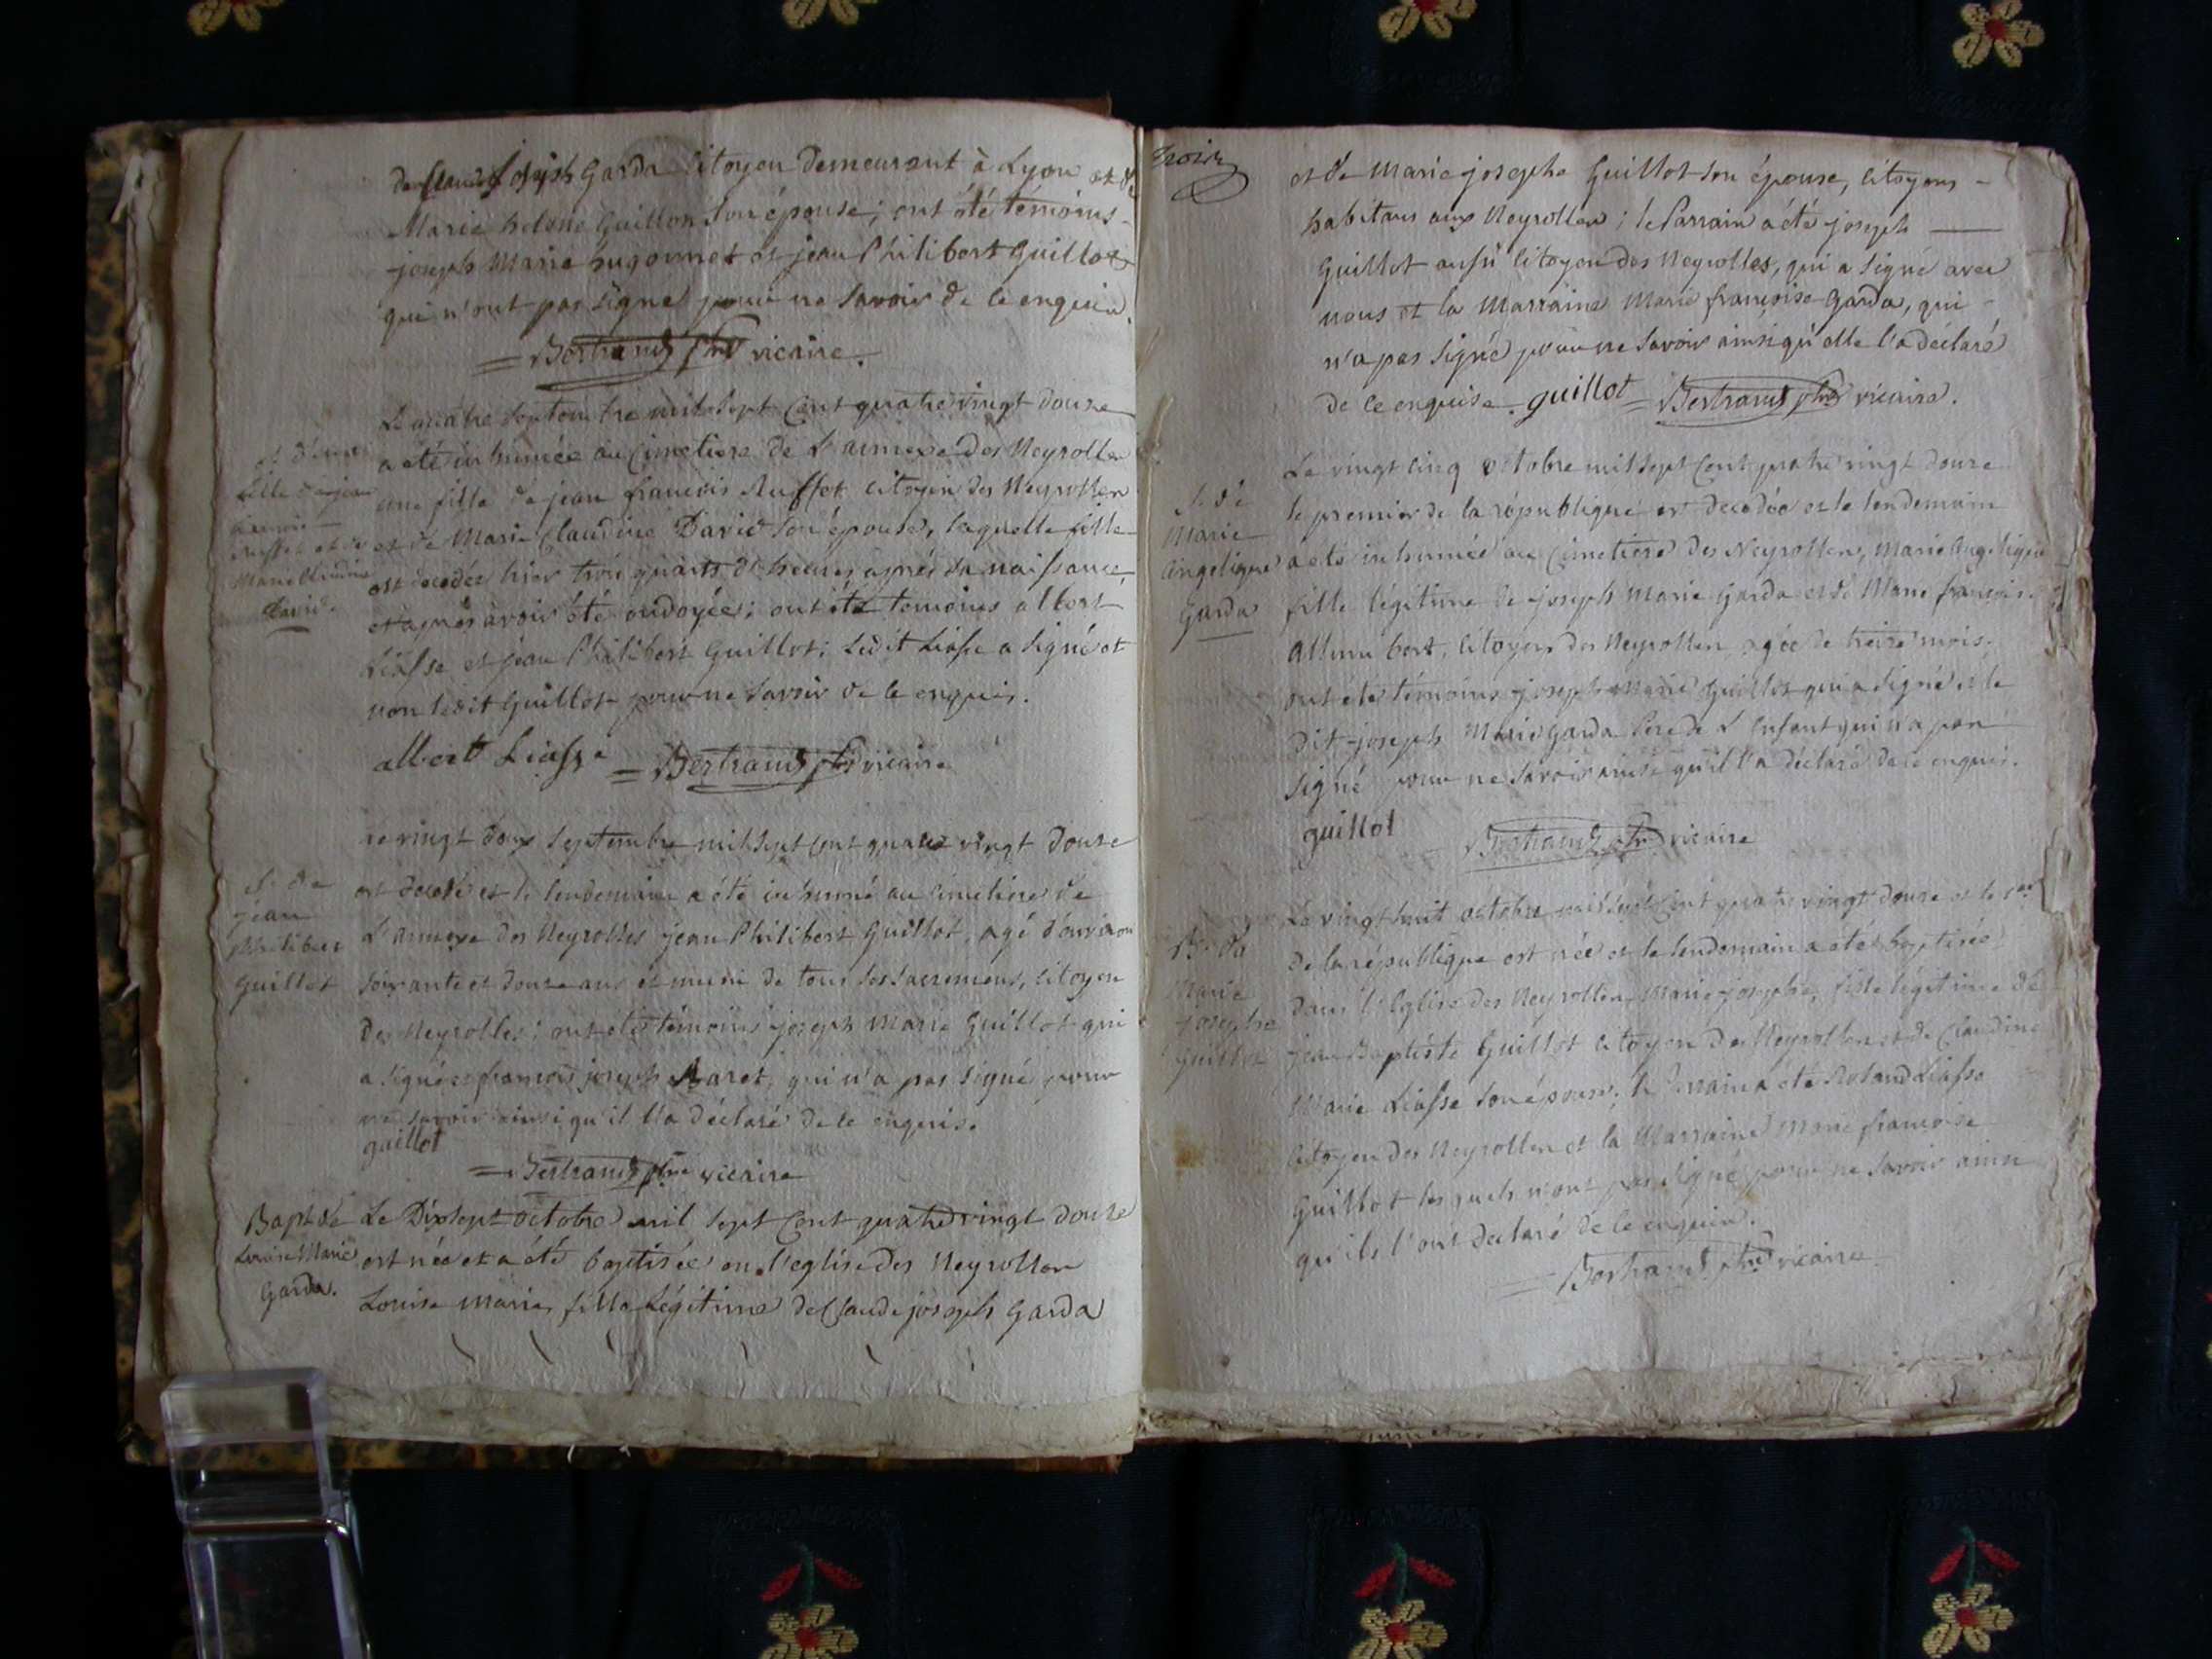 de Claude Joseph Garda Citoyen demeurant à Lyon et de
Marie helene Guillon Son épouse; ont été témoins
joseph Marie hugonnet et jean Philibert Guillot
qui n'ont pas signé pour ne Savoir de ce enquis.
= Bertrand ptre vicaire.
Le quatre Septembre mil sept Cent quatre vingt douze
a été inhumée au Cimetiere de L'annexe des Neyrolles
une fille de jean francois Ruffet Citoyen des Neyrolles
et de Marie Claudine David Son épouse, laquelle fille
est decedée hier trois quarts d'heures après sa naissance
et après avoir été ondoyée; ont été temoins albert
Liasse et jean Philibert Guillot; Ledit Liasse a signé et
non ledit Guillot pour ne Savoir de ce enquis.
albert Liasse = Bertrand ptre vicaire
fille de jean
francois
Ruffet et de
Marie Claudine
David.
Le vingt deux Septembre mil sept Cent quatre vingt douze
est decedé et le lendemain a été inhumé au Cimetiere de
L'annexe des Neyrolles jean Philibert Guillot, agé d'environ
soixante et douze ans et muni de tous Ses Sacremens, Citoyen
des Neyrolles; ont été témoins joseph Marie Guillot qui
a signé et francois joseph Maret, qui n'a pas signé pour
ne savoir ainsi qu'il l'a déclaré de ce enquis.
guillot
= Bertrand ptre vicaire
S. de
jean
Philibert
Guillot
Bapt de
Louise Marie
Garda.
Le Dix sept octobre mil sept Cent quatre vingt douze
est née et a été baptisée en l'eglise des Neyrolles
Louise Marie, fille Légitime de Claude joseph Garda
trois
et de Marie josephe Guillot son épouse, Citoyens
habitans aux Neyrolles; le Parrain a été joseph
Guillot aussi Citoyen des Neyrolles, qui a signé avec
nous et la Marraine Marie françoise Garda, qui
n'a pas signé pour ne Savoir ainsi qu'elle l'a déclaré
de ce enquise. guillot = Bertrand ptre vicaire.
S. de
Marie
Angelique
Garda
Le vingt cinq octobre mil sept Cent quatre vingt douze
le premier de la république est decedée et le lendemain
a été inhumée au Cimetiere des Neyrolles, Marie Angelique
fille légitime de joseph Marie Garda et de Marie françoise
Allombert, Citoyens des Neyrolles agée de treize mois;
ont été témoins joseph Marie Guillot qui a signé et le
dit joseph Marie Garda Pere de L'Enfant qui n'a pas
signé pour ne Savoir ainsi qu'il l'a déclaré de ce enquis.
guillot
Bertrand ptre vicaire
B. de
Marie
josephe
Guillot
Le vingt huit octobre mil sept Cent quatre vingt douze et le 1er
de la république est née et le lendemain a été baptisée
dans l'Eglise des Neyrolles, Marie josephe, fille légitime de
jean Baptiste Guillot Citoyen des Neyrolles et de Claudine
Marie Liasse Son épouse; le Parrain a été Roland Liasse
Citoyen des Neyrolles et la Marraine Marie francoise
Guillot lesquels n'ont pas signé pour ne Savoir ainsi
qu'ils l'ont declaré de ce enquis.
= Bertrand ptre vicaire